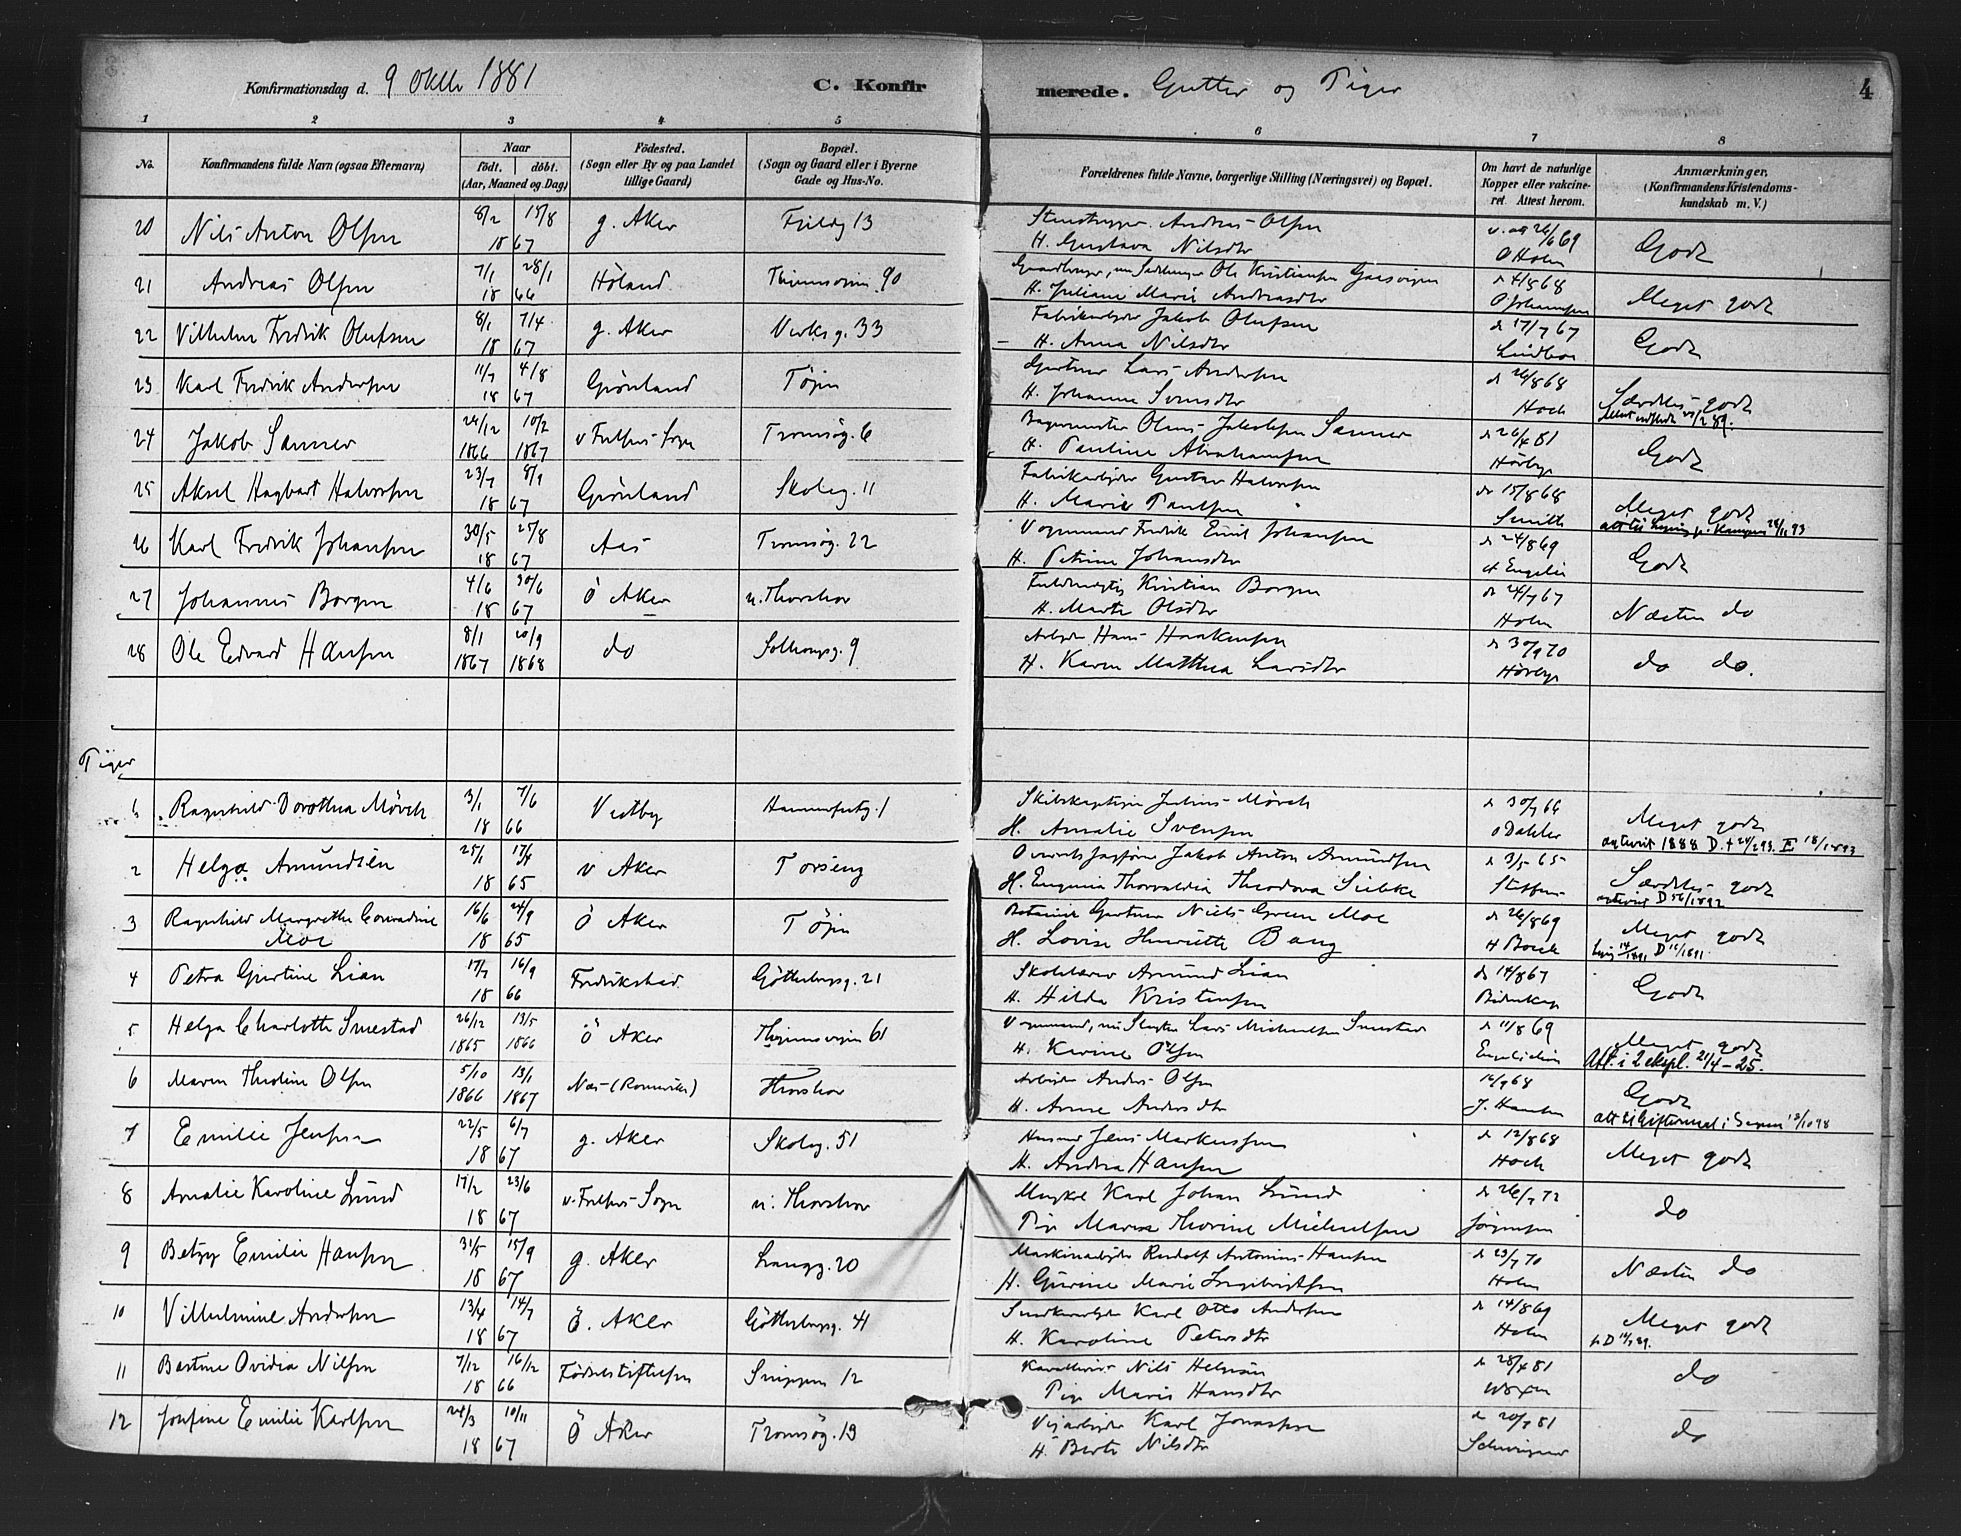 Konfirmationsdag d. 9 Oktb 1881 C. Konfirmerede. Gutter og Piger 4
1 2 3 4 5 6 7 8
No. Konfirmandens fulde Navn (ogsaa Efternavn) Naar födt. döbt. (Aar, Maaned og Dag) Födested. (Sogn eller By og paa Landet tillige Gaard) Bopæl. (Sogn og Gaard eller i Byerne Gade og Hus-No. Forældrenes fulde Navne, borgerlige Stilling (Næringsvei) og Bopæl. Om havt de naturlige Kopper eller vakcineret. Attest herom. Anmærkninger, (Konfirmandens Kristendomskundskab m. V.)
20 Nils Anton Olsen 8/2 15/8 1867 g. Aker 13 Andreas Olsen
H. Gustava Nilsdtr 26/6 69 O Holm Godt
21 Andreas Olsen 7/1 28/1 1866 Höland 90 Ole Kristiansen
H. Juliane Marie Andreasdtr 4/8 68 O Johansen Meget godt
22 Vilhelm Fredrik Olufsen 8/1 7/4 1867 g. Aker Verksg. 33 Fabrikarbeider Jakob Olufsen
H. Anna Nilsdtr 17/7 67 Lindboe Godt
23 Karl Fredrik Andersen 11/7 4/8 1867 Grönland Töjen Gartner Lars Andersen
H. Johanne Svensdtr 26/8 68 Hoch Særdeles godt
24 Jakob Sanner 24/12 1866 10/2 1867 v Frelsers Sogn Tromsög. 6 Bagermester Olaus Jakobsen Sanner
H. Pauline Abrahamsen 26/4 81 Hörbye Godt
25 Aksel Hagbart Halvorsen 23/7 8/9 1867 Grönland Skoleg. 11 Fabrikarbeider Gustav Halvorsen
H. Marie Paulsen 15/8 68 Smith Meget godt
26 Karl Fredrik Johansen 30/5 25/8 1867 Aas Tromsög. 22 Vognmand Fredrik Emil Johansen
H. Petrine Johansdtr 24/8 69 Godt
27 Johannes Borgen 4/6 30/6 1867 Ö Aker n. Thorshov Fuldmægtig Kristian Borgen
H. Marte Olsdtr 24/7 67 Holm Næsten do
28 Ole Edvard Hansen 8/1 1867 20/9 1868 do 9 Arbeider Hans Haakensen
H. Karen Matthea Larsdtr 30/9 70 Hörbye do do.
Piger
1 Ragnhild Dorothea Mörch 3/1 7/6 1866 Vestby Hammerfestg. 1 Skibskaptein Julius Mörch
H. Amalie Svensen 30/7 66 O Dahler Meget godt
2 Helga Amundsen 25/1 17/4 1865 v Aker Torseng Jakob Anton Amundsen
H. Eugenia Thorvaldia Theodora Siebke 3/5 65 Steffens Særdeles godt
3 Ragnhild Margrethe Conradine Moe 16/6 24/9 1865 Ö Aker Töjen Botanisk Gartner Niels Green Moe
H. Lovise Henriette Bang 26/8 69 H Boeck Meget godt
4 Petra Gjertine Lian 17/7 16/9 1866 Fredrikstad Götteborgsg. 21 Skolelærer Amund Lian
H. Hilda Kristensen 14/8 67 Godt
5 Helga Charlotte Smestad 26/12 1865 13/5 1866 Ö Aker 61 Lars Michaelsen Smestad
H. Karine Olsen 11/8 69 Meget godt
Att. i 2 ekspl. 21/4-25.
6 Maren Theoline Olsen 5/10 1866 13/1 1867 Næs (Romerike) Thorshov Arbeider Anders Olsen
H. Anne Andersdtr 16/9 68 J. Hansen Godt
7 Emilie Jensen 22/5 6/7 1867 g. Aker Skoleg. 51 Jens Markussen
H. Andrea Hansen 12/8 68 Hoch Meget godt
8 Amalie Karoline Lund 17/2 23/6 1867 v. Frelsers Sogn n. Thorshov Karl Johan Lund
Pige Maren Thorine Michaelsen 26/7 72 Jörgensen do
9 Betzy Emilie Hansen 31/5 15/9 1867 g. Aker Langg. 20 Maskinarbeider Rudolf Antonius Hansen
H. Gurine Marie Ingebrigtsen 23/7 70 Holm Næsten do
10 Vilhelmine Andersen 13/4 14/7 1867 Ö. Aker Götteborgsg. 41 Snedkerarbeider Karl Otto Andersen
H. Karoline Petersdtr 14/8 69 Holm Meget godt
11 Bertine Ovidia Nilsen 7/12 16/12 1866 Födselsstiftelsen Snippen 12 Nils Helgesen
Pige Marie Hansdtr 28/4 81 do
12 Josefine Emilie Karlsen 24/3 10/11 1867 Ö Aker Tromsög. 13 Veiarbeider Karl Jonassen
H. Berte Nilsdtr 20/7 81 do